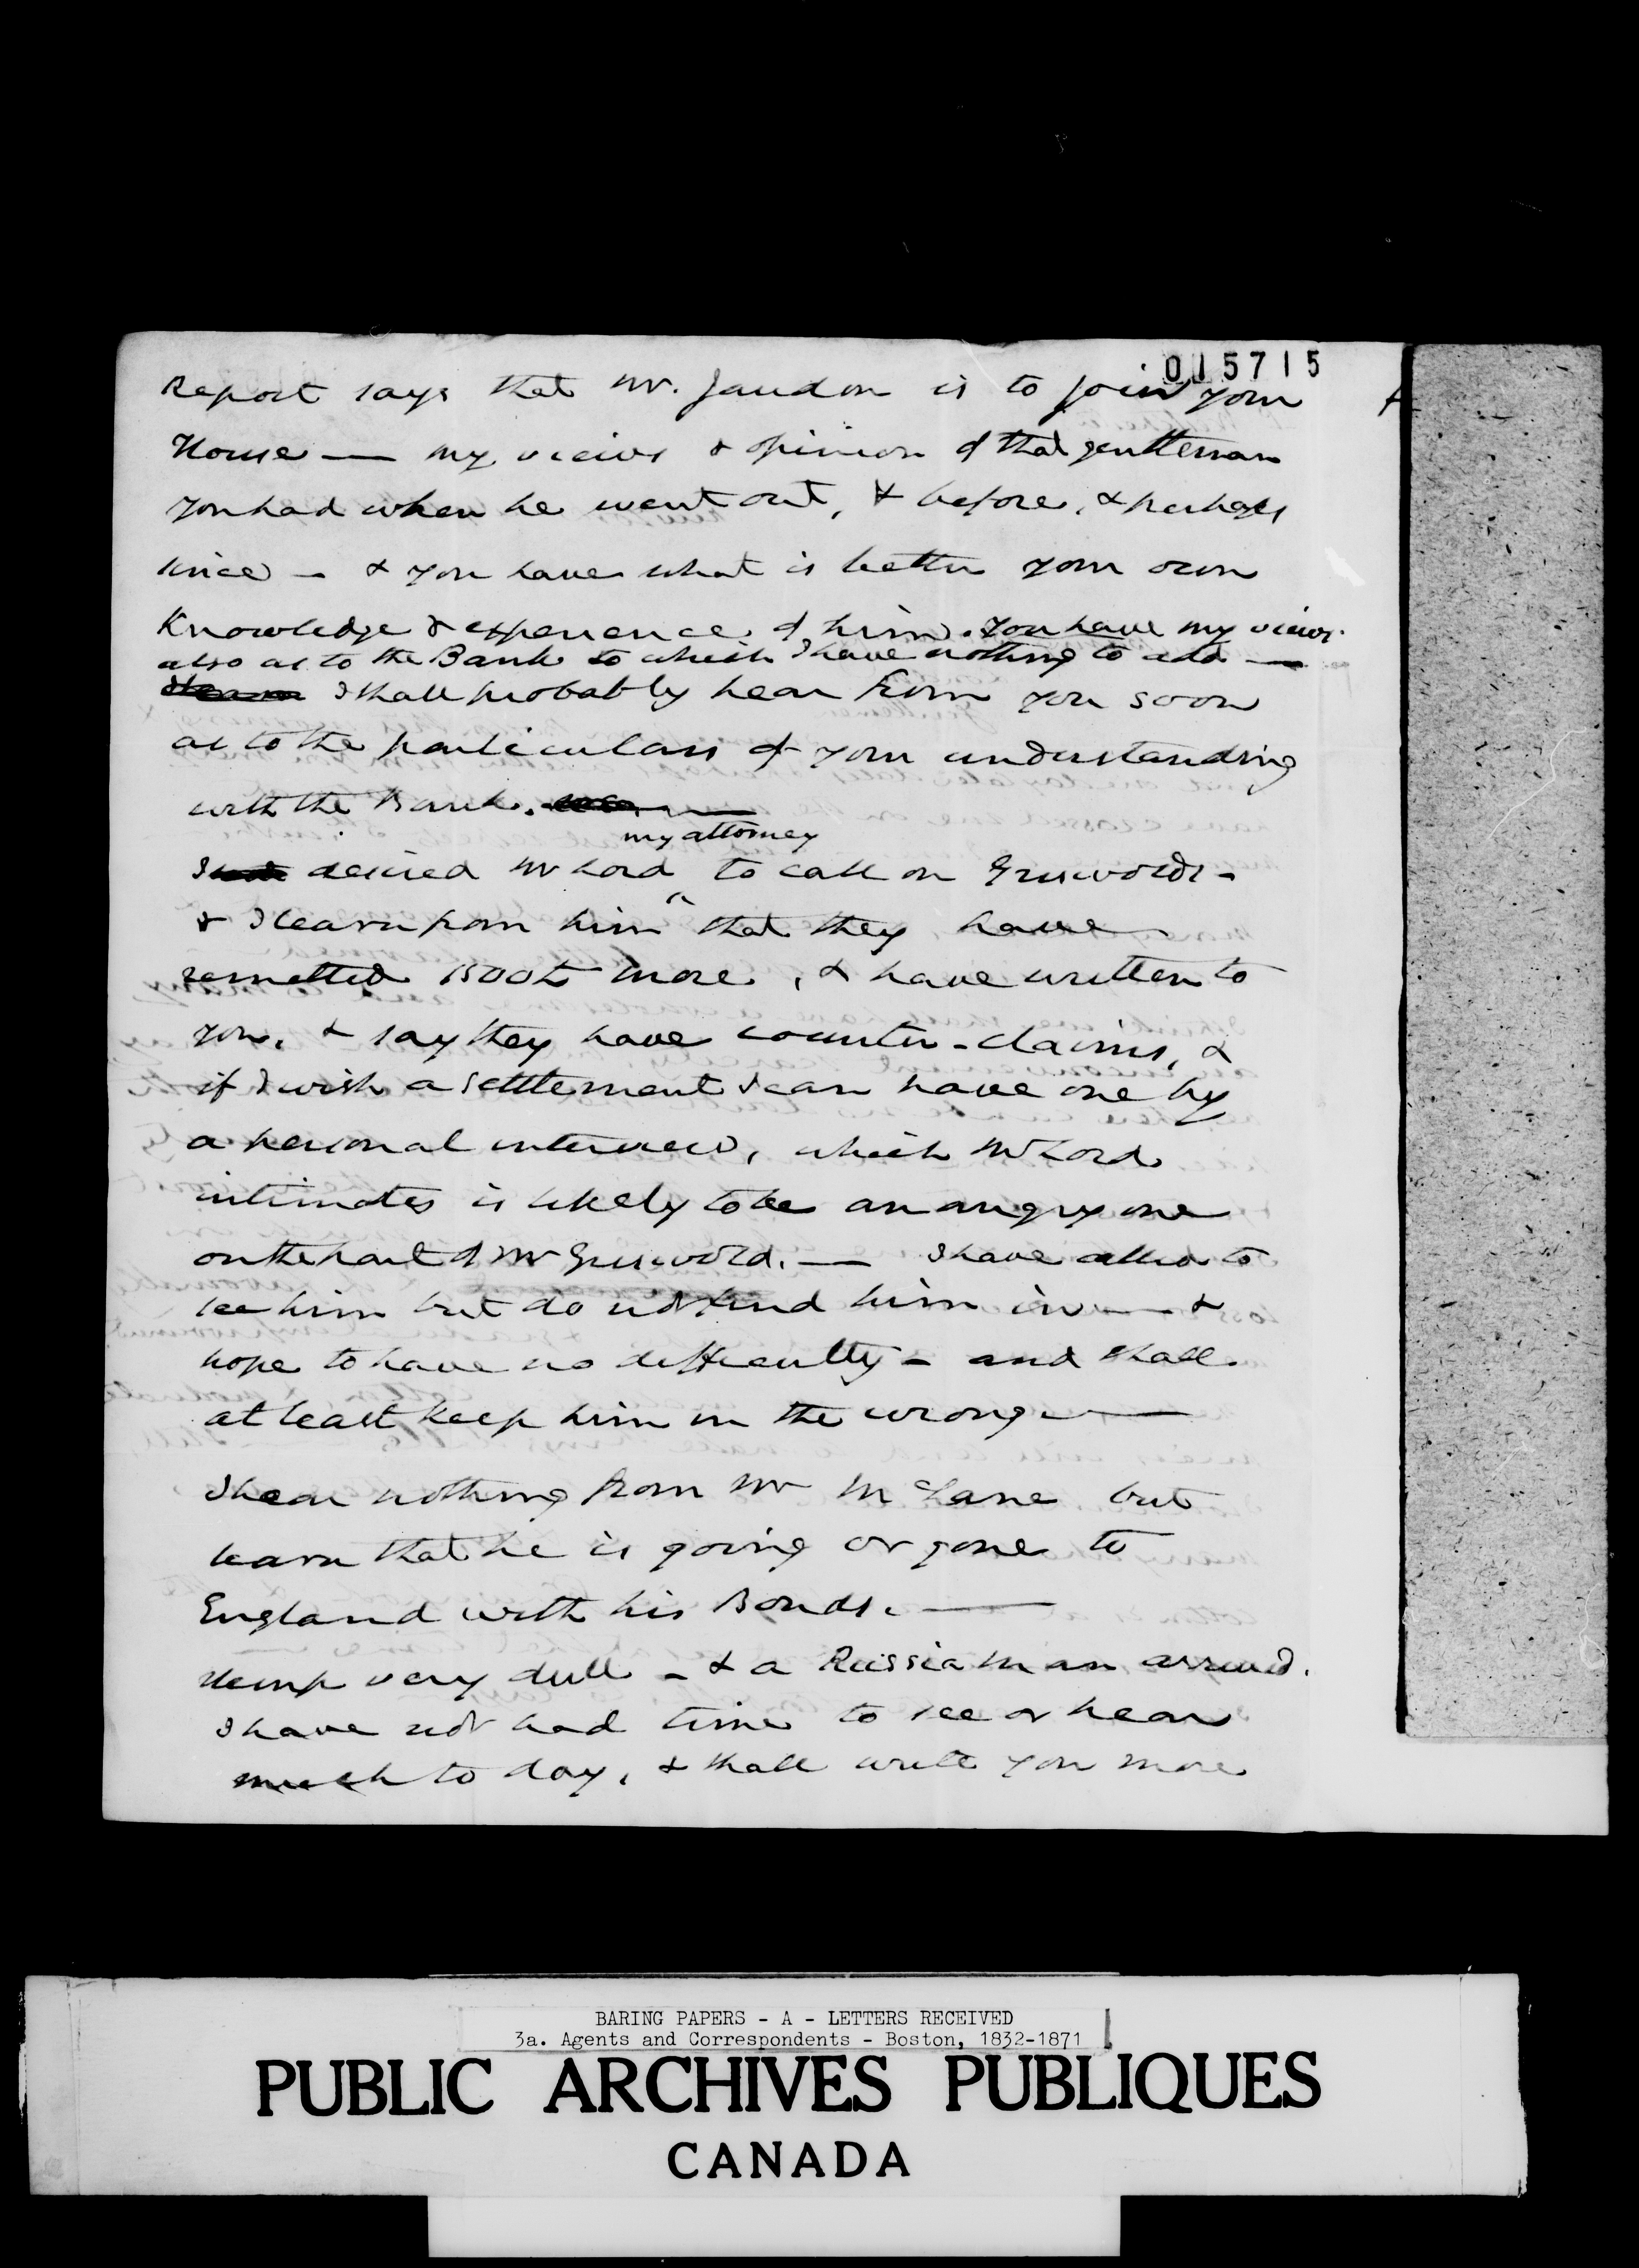 015715
Report says that Mr. Jaudon is to join your
House — my views & opinion of that gentleman
you had when he went out, & before, & perhaps
since — & you have what is better your own
Knowledge & experience of him. You have my views
also as to the Bank to which I have nothing to add —
I shall probably hear from you soon
as to the particulars of your understanding
with the Bank.
my attorney
I desired Mr Lord ^ to call on Griswolds -
& I learn from him that they have
remitted 1500£ more, & have written to
you, & say they have counter-claims, &
if I wish a settlement I can have one by
a personal interview, which Mr Lord
intimates is likely to be an angry one
on the part of Mr Griswold. — I have called to
see him but do not find him in — &
hope to have no difficulty - and shall
at least keep him in the wrong —
I hear nothing from Mr McLane but
learn that he is going or gone to
England with his Bonds. —
Hemp very dull - & a Russia man arrived.
I have not had time to see or hear
much to day, & shall write you more
BARING PAPERS - A - LETTERS RECEIVED
3a. Agents and Correspondents - Boston, 1832-1871
PUBLIC ARCHIVES PUBLIQUES
CANADA